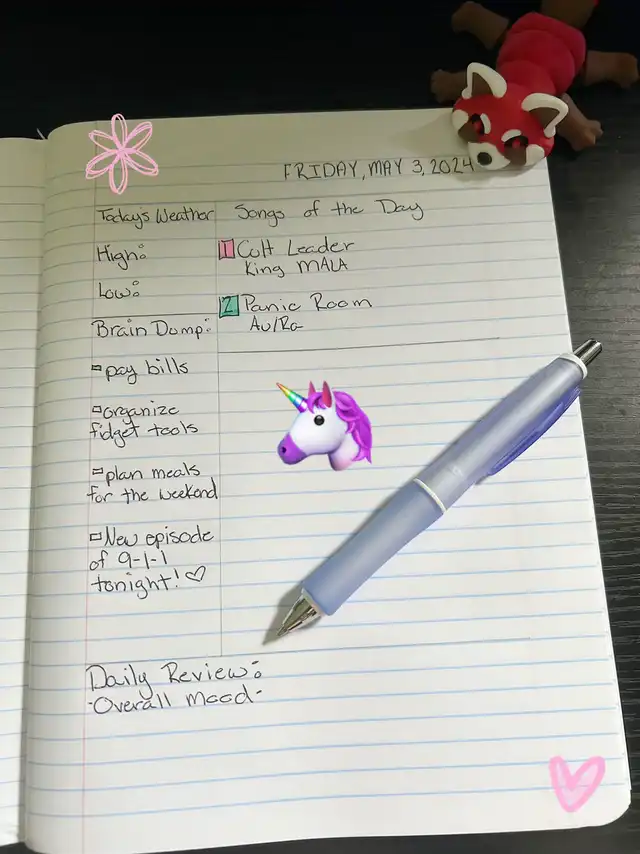 FRIDAY, MAY 3, 2024
Today's Weather
High:
Low:
Songs of the Day
1 Cult Leader
King MALA
2 Panic Room
Au/Ra
Brain Dump:
pay bills
organize
fidget tools
plan meals
for the weekend
New episode
of 9-1-1
tonight! ♡
Daily Review:
-Overall mood-